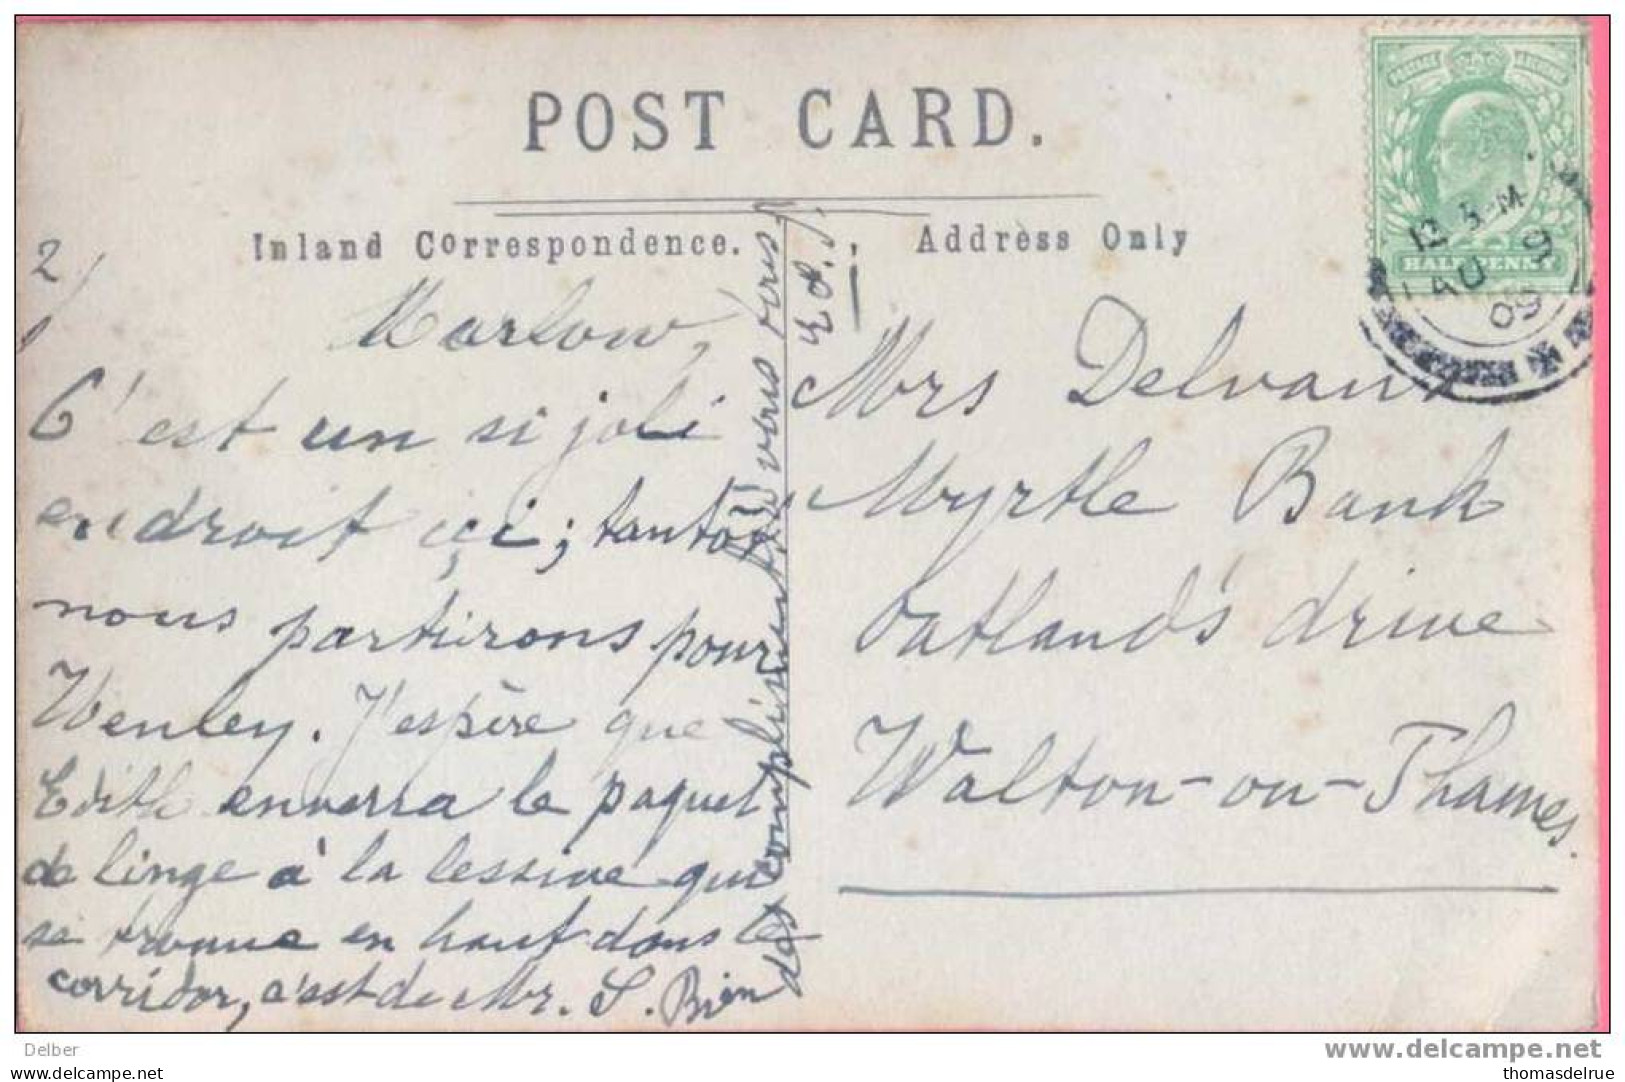 POST CARD.
Inland Correspondence.
Address Only
2/
Marlow,
C'est un si joli
endroit içi; tantôt
nous partirons pour
Henley. J'espère que
Edith enverra le paquet
de linge à la lessive qui
se trouve en haut dans le
corridor, c'est de Mr. S. Bien
des compliments à vous tous.
Ed. J.
Mrs Delvaux
Myrtle Bank
Oatland's drive
Walton-on-Thames.
HALFPENNY
AU 9
09
Delber
www.delcampe.net
thomasdelrue